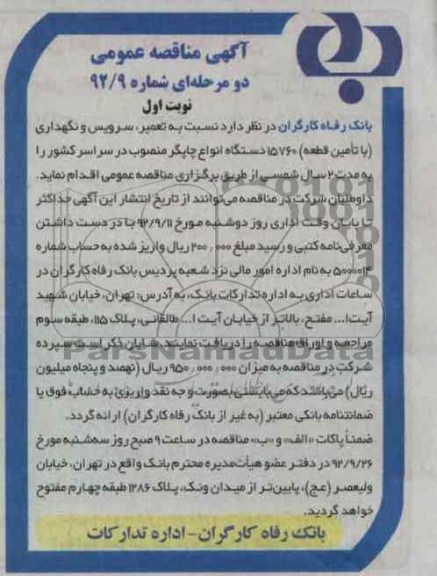 آگهی مناقصه عمومی
دو مرحله‌ای شماره ۹۲/۹
نوبت اول
بانک رفاه کارگران در نظر دارد نسبت به تعمیر، سرویس و نگهداری
(با تأمین قطعه) ۱۵۷۶۰ دستگاه انواع چاپگر منصوب در سراسر کشور را
به مدت ۲ سال شمسی از طریق برگزاری مناقصه عمومی اقدام نماید.
داوطلبان شرکت در مناقصه می‌توانند از تاریخ انتشار این آگهی حداکثر
تا پایان وقت اداری روز دوشنبه مورخ ۹۲/۹/۱۱ با در دست داشتن
معرفی‌نامه کتبی و رسید مبلغ ۲۰۰/۰۰۰ ریال واریز شده به حساب شماره
۵۰۰۰۰۱۴ به نام اداره امور مالی نزد شعبه پردیس بانک رفاه کارگران در
ساعات اداری به اداره تدارکات بانک، به آدرس: تهران، خیابان شهید
آیت‌ا... مفتح، بالاتر از خیابان آیت ا... طالقانی، پلاک ۱۱۵، طبقه سوم
مراجعه و اوراق مناقصه را دریافت نمایند. شایان ذکر است سپرده
شرکت در مناقصه به میزان ۹۵۰/۰۰۰/۰۰۰ ریال (نهصد و پنجاه میلیون
ریال) می‌باشد که می‌بایستی بصورت وجه نقد واریزی به حساب فوق یا
ضمانتنامه بانکی معتبر (به غیر از بانک رفاه کارگران) ارائه گردد.
ضمناً پاکات «الف» و «ب» مناقصه در ساعت ۹ صبح روز سه‌شنبه مورخ
۹۲/۹/۲۶ در دفتر عضو هیأت‌مدیره محترم بانک واقع در تهران، خیابان
ولیعصر (عج)، پایین‌تر از میدان ونک، پلاک ۱۲۸۶ طبقه چهارم مفتوح
خواهد گردید.
بانک رفاه کارگران - اداره تدارکات
ParsNamadData